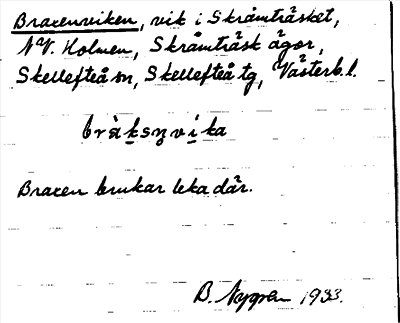 Braxenviken, vik i Skråmträsket,
N.V. Holmen, Skråmträsk ägor,
Skellefteå sn, Skellefteå tg, Västerb. l.
bràksn̥vika
Braxen brukar leka där.
B. Nygren 1933.